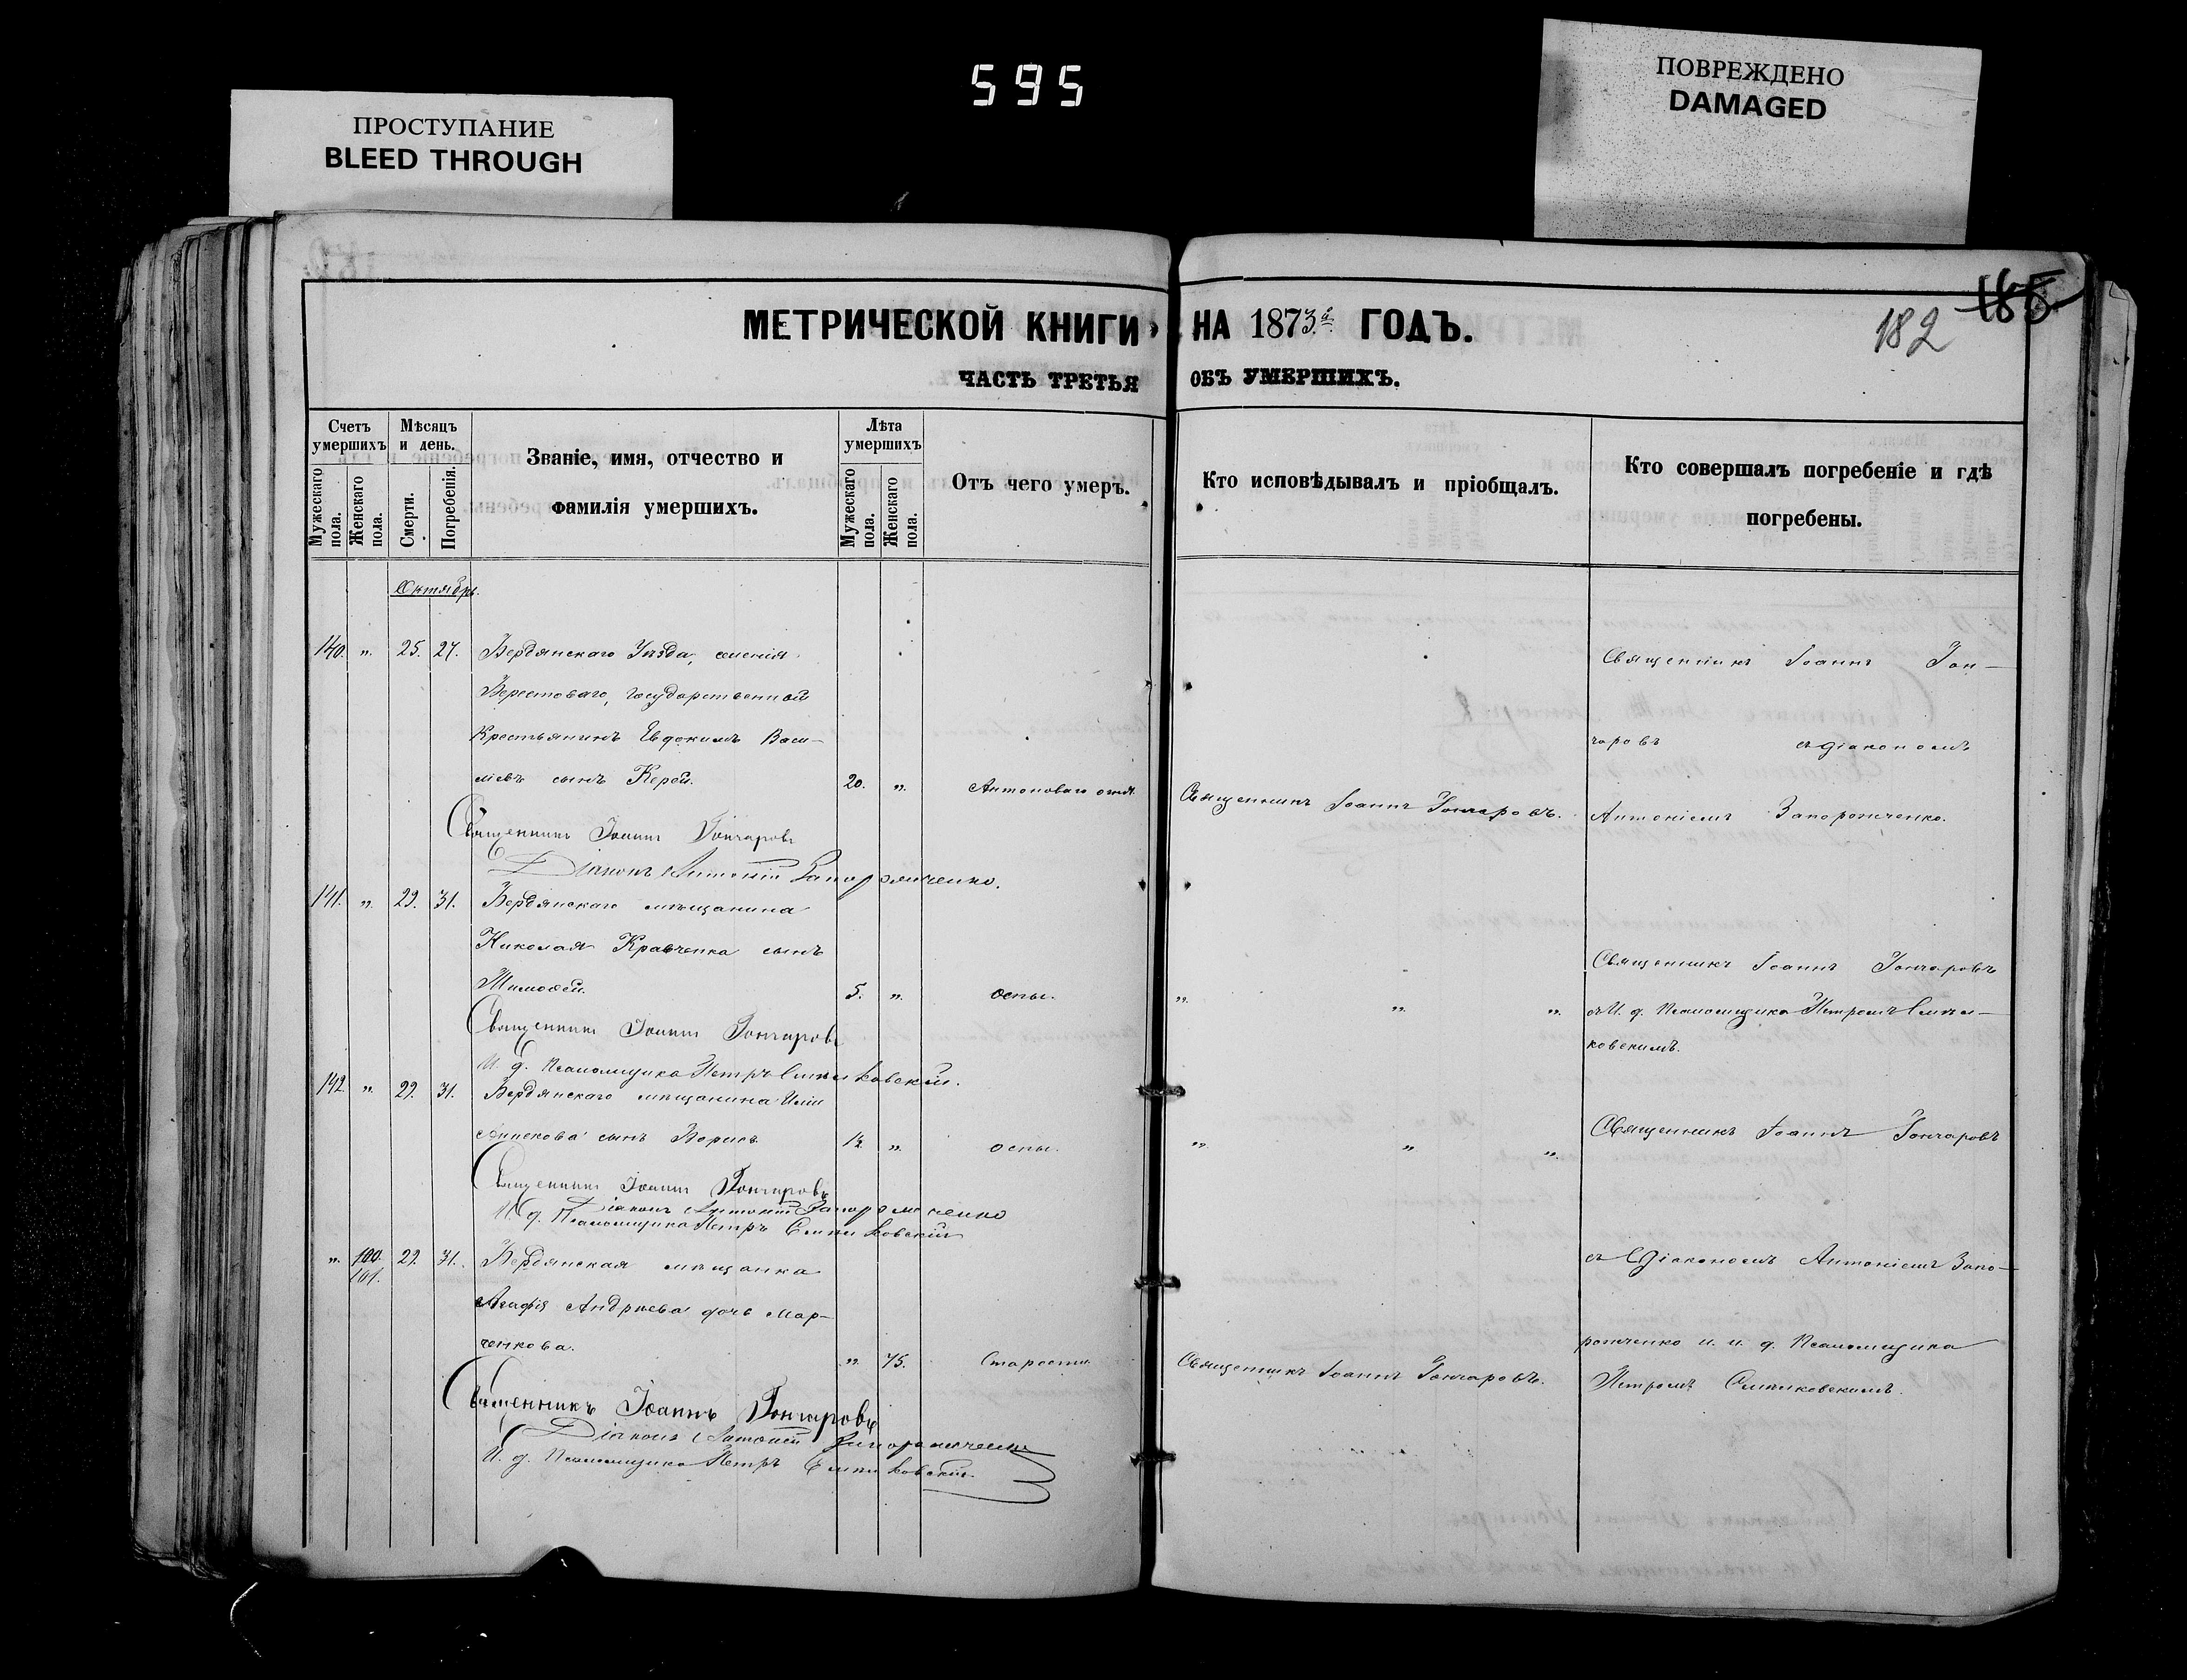 595
ПРОСТУПАНИЕ
BLEED THROUGH
ПОВРЕЖДЕНО
DAMAGED
185
182
МЕТРИЧЕСКОЙ КНИГИ НА 1873й ГОДЪ.
ЧАСТЬ ТРЕТЬЯ ОБЪ УМЕРШИХЪ.
Счетъ умершихъ
Мужескаго пола.
Женскаго пола.
Мѣсяцъ и день.
Смерти.
Погребенія.
Званіе, имя, отчество и
фамилія умершихъ.
Лѣта умершихъ
Мужескаго пола.
Женскаго пола.
Отъ чего умеръ.
Кто исповѣдывалъ и пріобщалъ.
Кто совершалъ погребеніе и гдѣ
погребены.
Октябрь.
140. „ 25. 27. Бердянскаго Уѣзда, селенія
Берестоваго, Государственной
Крестьянинъ Евдокимъ Васи-
ліевъ сынъ Керей. 20. „ Антоноваго огня.
Священникъ Іоаннъ Гончаровъ.
Священникъ Іоаннъ Гон-
чаровъ съ діакономъ
Антоніемъ Запорожченко.
Священникъ Іоаннъ Гончаровъ
Діаконъ Антоній Запорожченко.
141. „ 29. 31. Бердянскаго мѣщанина
Николая Кравченка сынъ
Тимофей. 5. „ оспы. „ „ „
Священникъ Іоаннъ Гончаровъ
съ И. д. Псаломщика Петромъ
ковскимъ.
Священникъ Іоаннъ Гончаровъ
И. д. Псаломщика Петръ
142. „ 29. 31. Бердянскаго мѣщанина Иліи
сынъ Борисъ. 1½ „ оспы. „ „ „
Священникъ Іоаннъ Гончаровъ
Священникъ Іоаннъ Гончаровъ
Діаконъ Антоній Запорожченко
И. д. Псаломщика Петръ
„ 100. 29. 31. Бердянская мѣщанка
101.
Агафія Андреева дочь Мар-
ченкова. „ 75. Старости.
Священникъ Іоаннъ Гончаровъ.
съ Діакономъ Антоніемъ Запо-
рожченко и и. д. Псаломщика
Петромъ
Священникъ Іоаннъ Гончаровъ
Діаконъ Антоній Запорожченко
И. д. Псаломщика Петръ